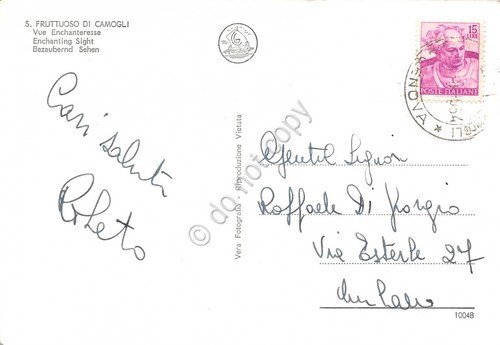 S. FRUTTUOSO DI CAMOGLI
Vue Enchanteresse
Enchanting Sight
Bezaubernd Sehen
15
LIRE
POSTE ITALIANE
GENOVA *
Cari saluti
Vera Fotografia - Riproduzione Vietata
© do not copy
Gentil Signor
Raffaele Di Giorgio
Via Esterle 27
Milano
10048